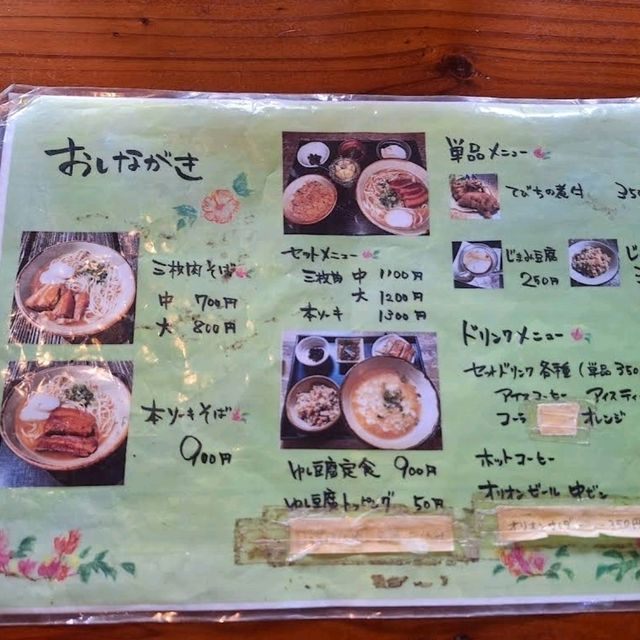 おしながき
三枚肉そば
中 700円
大 800円
本ソーキそば
900円
セットメニュー
三枚肉 中 1100円
大 1200円
本ソーキ 1300円
ゆし豆腐定食 900円
ゆし豆腐トッピング 50円
単品メニュー
てびちの煮付 350
じまみ豆腐
250円
ドリンクメニュー
セットドリンク各種 (単品350
アイスコーヒー アイスティ
コーラ オレンジ
ホットコーヒー
オリオンビール 中ビン
350円